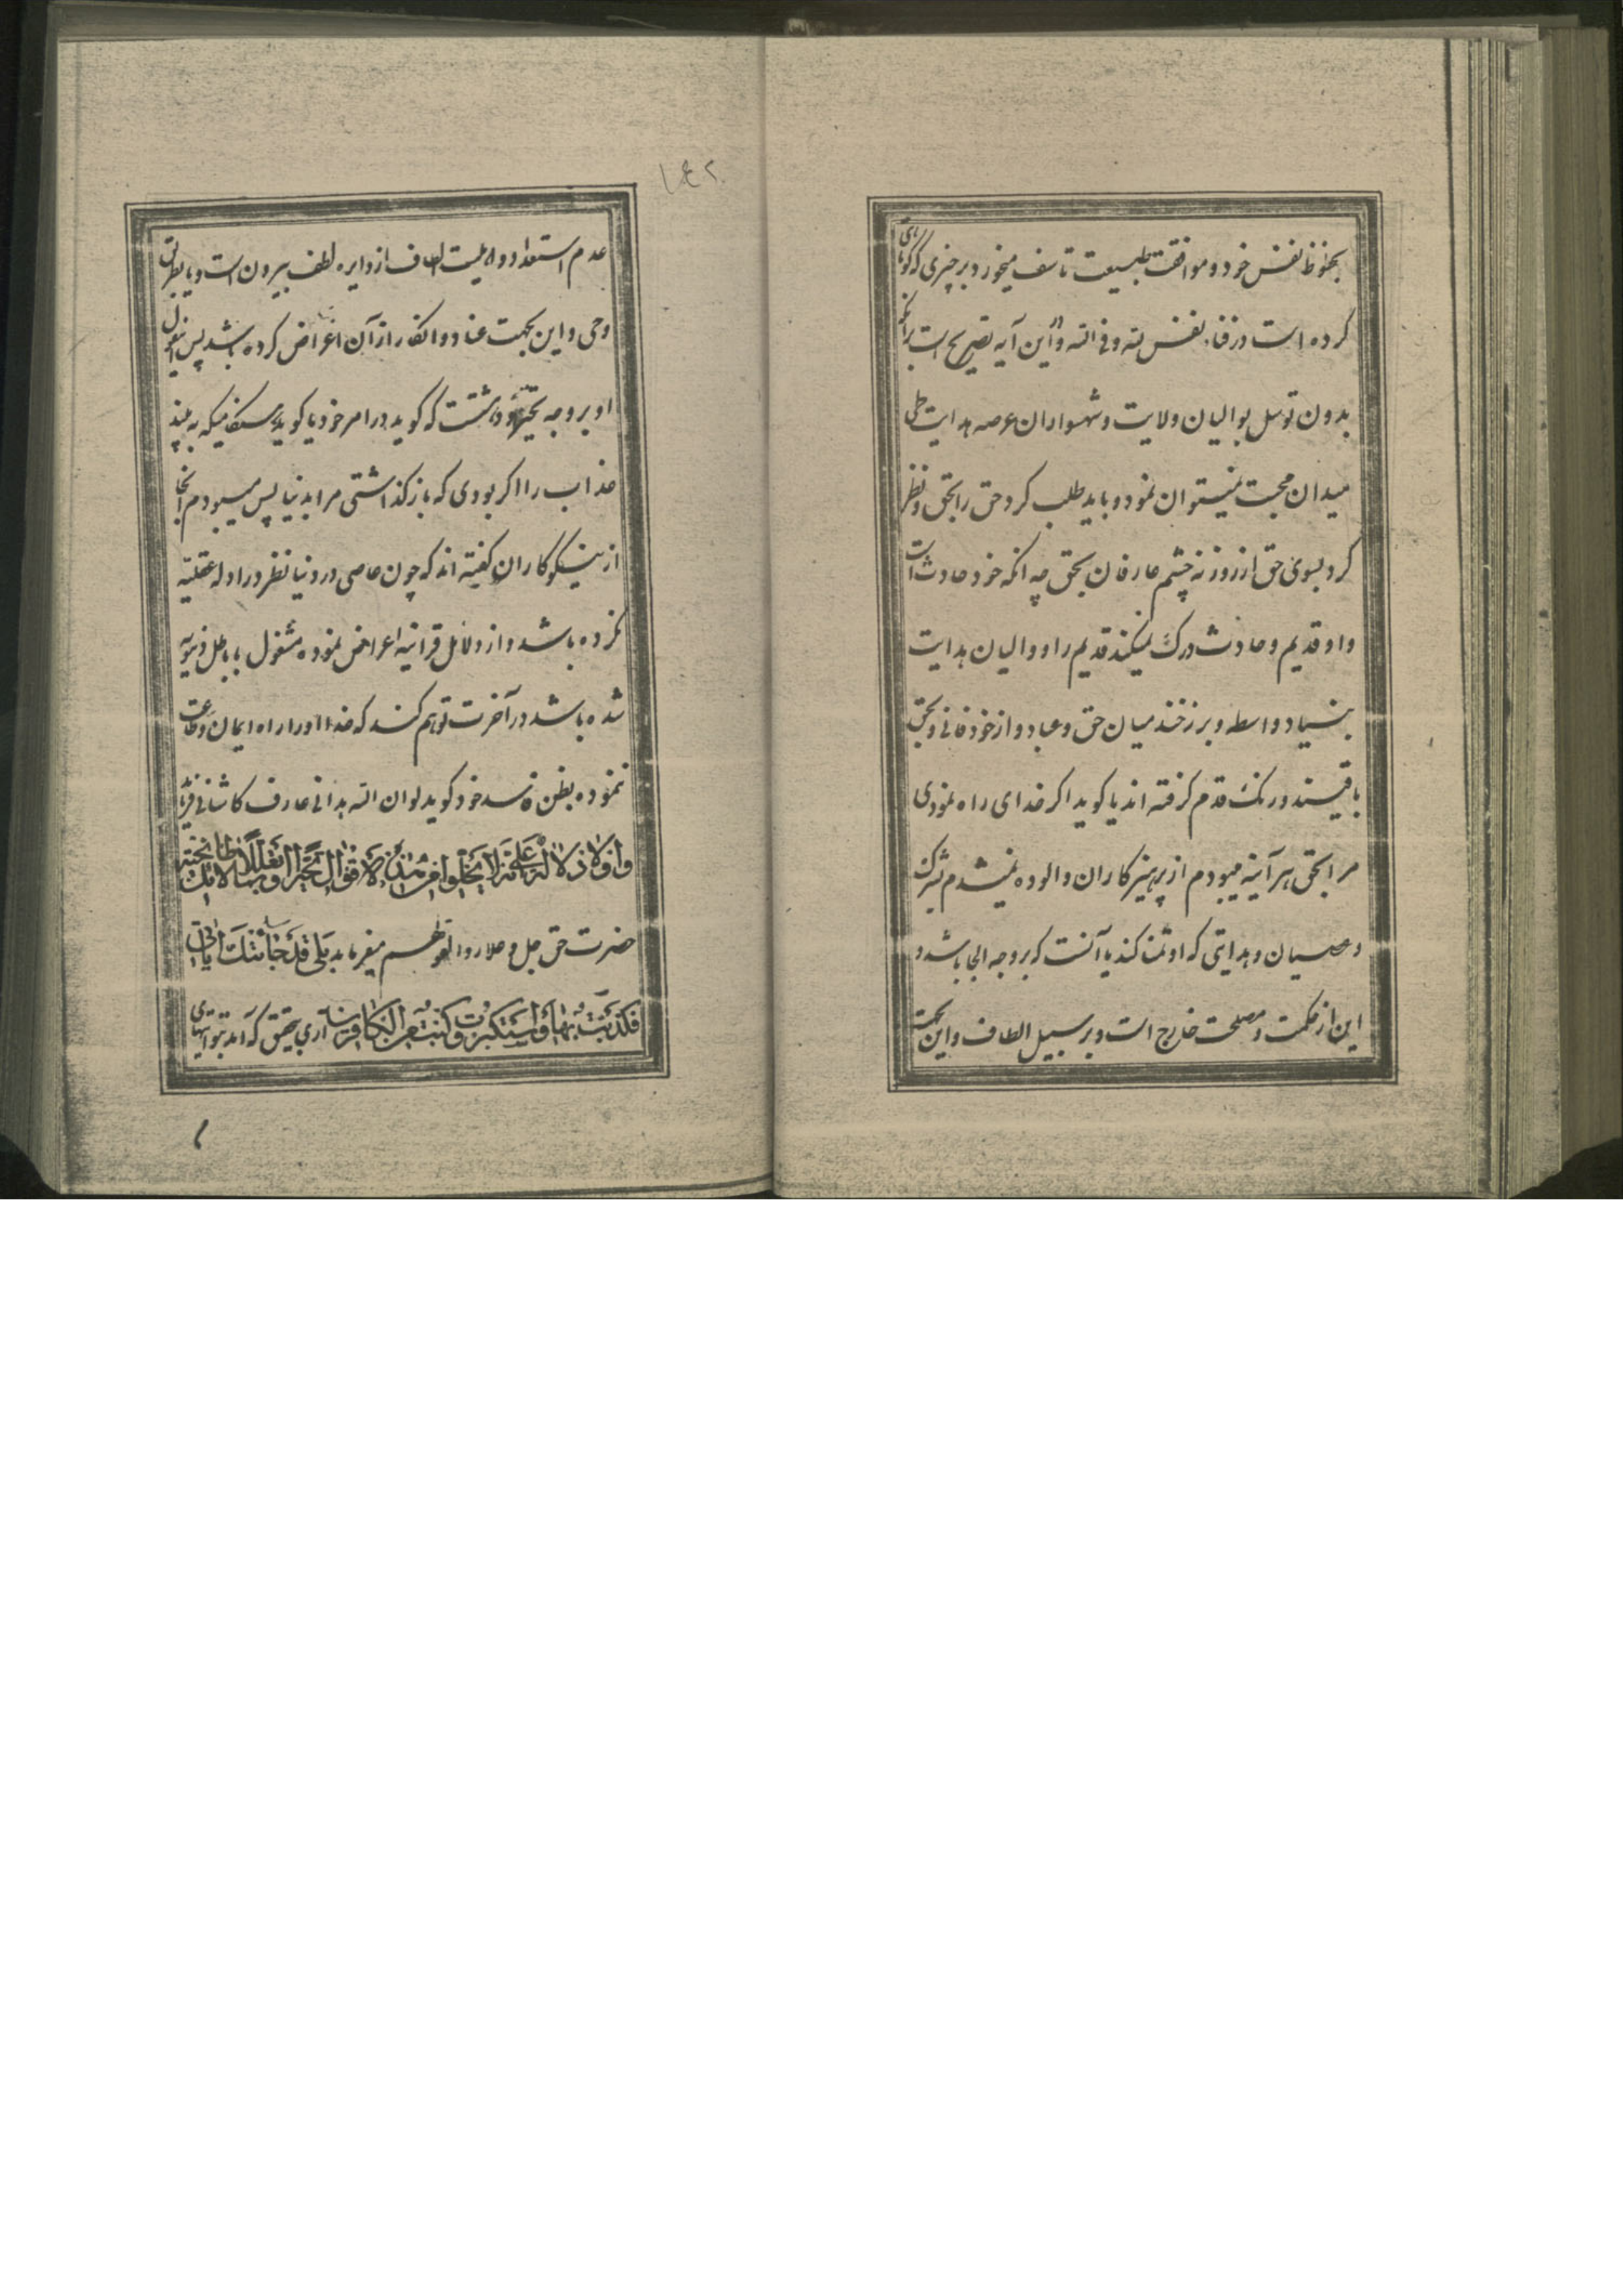 بحظوظ نفس خود و موافقت طبیعت تاسف میخورد بر چیزی که کوتاهی
کرده است در فناء نفس لله و فی الله و در این آیه تصریح است برآنکه
بدون توسل بوالیان ولایت و شهسواران عرصه هدایت طی
میدان محبت نمیتوان نمود و باید طلب کرد حق را بحق و نظر
کرد بسوی حق از روزنه چشم عارفان بحق چه آنکه خود حادث است
و او قدیم و حادث درک نمیکند قدیم را و والیان هدایت
بنیاد واسطه و برزخند میان حق و عباد و از خود فانی و بحق
باقیند و رنک قدم کرفته اند یا کوید اکر خدای راه نمودی
مرا بحق هر آینه میبودم از پرهیزکاران و آلوده نمیشدم بشرک
و عصیان و هدایتی که او تمنا کند یا آنست که بر وجه الجا باشد و
این از حکمت و مصلحت خارج است و بر سبیل الطاف و این بجهت
عدم استعداد و اهلیت الطاف از دایره لطف بیرون است و یا بطریق
وحی و این بجهت عناد و انکار از آن اعراض کرده باشد پس این قول
او بر وجه تحیر خواهد داشت که کوید در امر خود یا کوید هنکامیکه به بیند
عذاب را اکر بودی که باز کذاشتی مرا بدنیا پس میبودم آنجا
از نیکوکاران کفته اند که چون عاصی در دنیا نظر در ادله عقلیه
نکرده باشد و از دلایل قرآنیه اعراض نموده مشغول باباطل دنیویه
شده باشد در آخرت توهم کند که خدا او را راه ایمان و طاعت
ننموده بظن فاسد خود کوید لو ان الله هدانی عارف کاشانی فرماید
حضرت حق جل و علا ردا لتوهمهم میفرماید بَلی قَدْ جاءَتْکَ آیاتی
فَکَذَّبْتَ بِها وَاسْتَکْبَرْتَ وَکُنْتَ مِنَ الْکافِرینَ آری بتحقیق که آمد بتو آیتهای